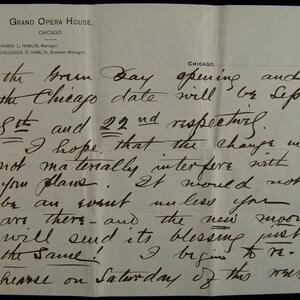 GRAND OPERA HOUSE,
CHICAGO.
HARRY L. HAMLIN, Manager.
FREDERICK R. HAMLIN, Business Manager.
CHICAGO,
the Green Bay opening and
the Chicago date will be Sep
8th and 22nd respectivly.
I hope that the change may
not materially interfere with
your plans. It would not
be an event unless you
are there - and the new moon
will send its blessing just
the same! I begin to re-
hearse on Saturday of this week